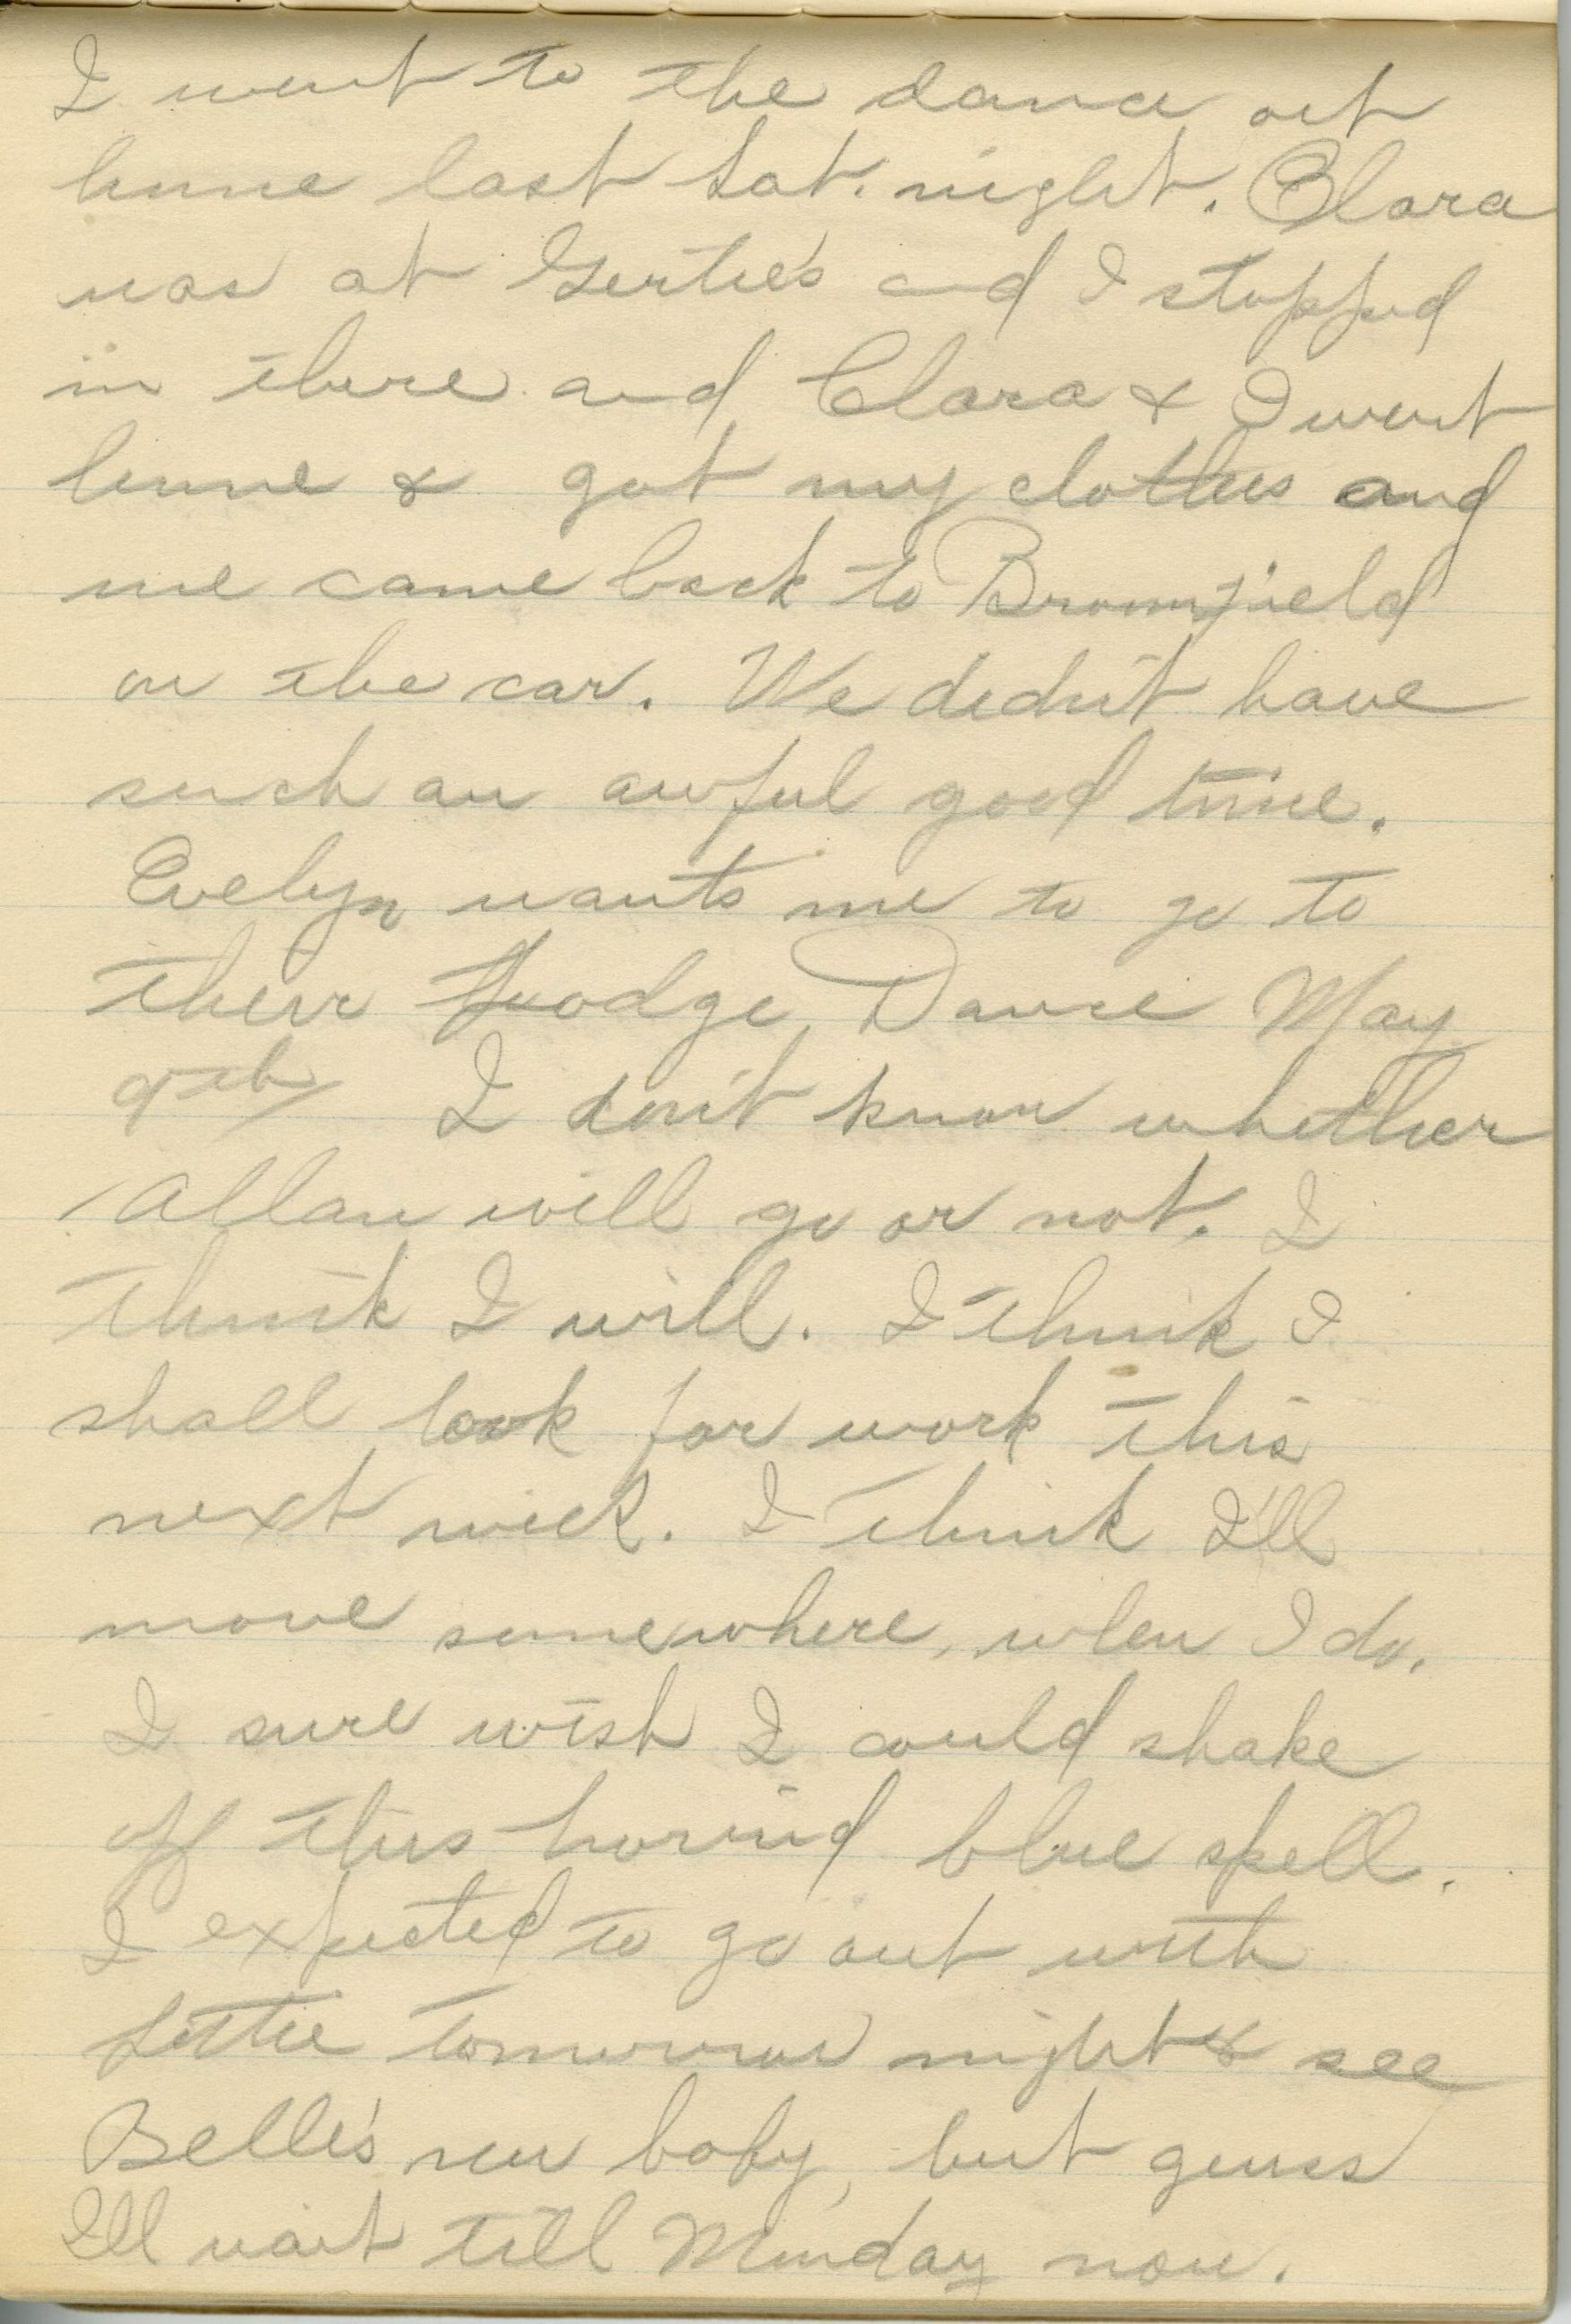 I went to the dance at
home last Sat. night. Clara
was at Gertie's and I stopped
in there and Clara & I went
home & got my clothes and
we came back to Broomfield
on the car. We didn't have
such an awful good time.
Evelyn wants me to go to
their Lodge Dance May
9th I don't know whether
Allan will go or not. I
think I will. I think I
shall look for work this
next week. I think I'll
move somewhere, when I do.
I sure wish I could shake
off this horrid blue spell.
I expected to go out with
Lottie tomorrow night & see
Belle's new baby, but guess
I'll wait till Monday now.